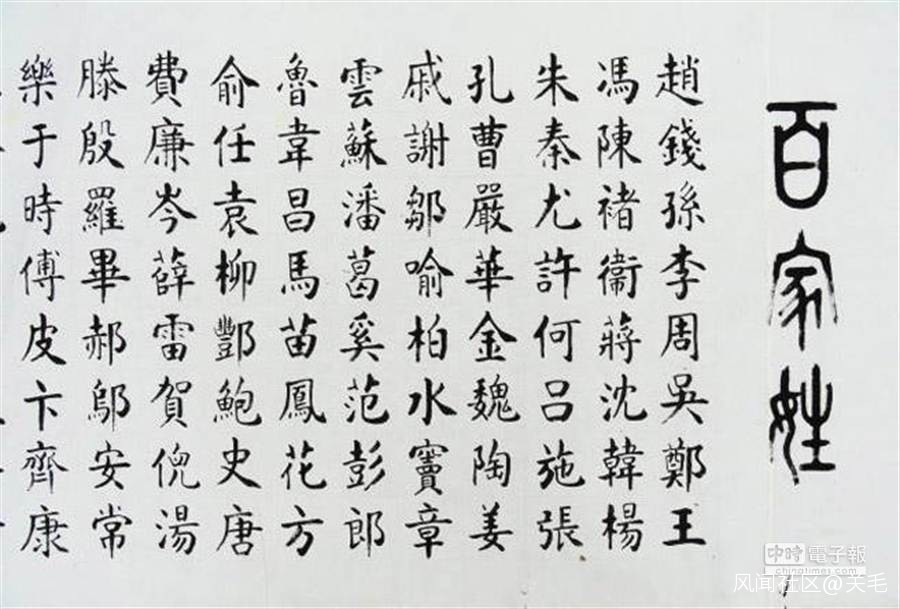 百家姓
趙錢孫李周吳鄭王
馮陳褚衞蔣沈韓楊
朱秦尤許何呂施張
孔曹嚴華金魏陶姜
戚謝鄒喻柏水竇章
雲蘇潘葛奚范彭郎
魯韋昌馬苗鳳花方
俞任袁柳酆鮑史唐
費廉岑薛雷賀倪湯
滕殷羅畢郝鄔安常
樂于時傅皮卞齊康
中時電子報
chinatimes.com
风闻社区@关毛